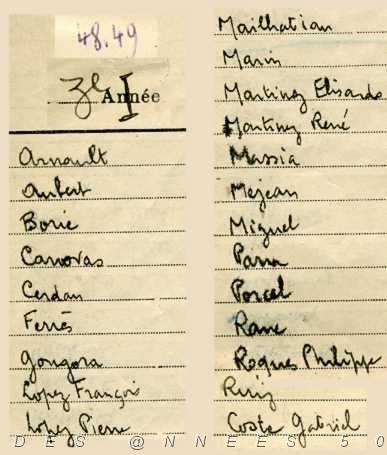 48.49
3e I
Année
Arnault
Aubert
Borie
Canovas
Cerdan
Ferrès
Gongora
Lopez François
Lopez Pierre
Mailhabiau
Marin
Martinez Elisardo
Martinez René
Massia
Mejean
Miguel
Parra
Porcel
Rame
Roques Philippe
Ruiz
Coste Gabriel
DES @NNEES 50